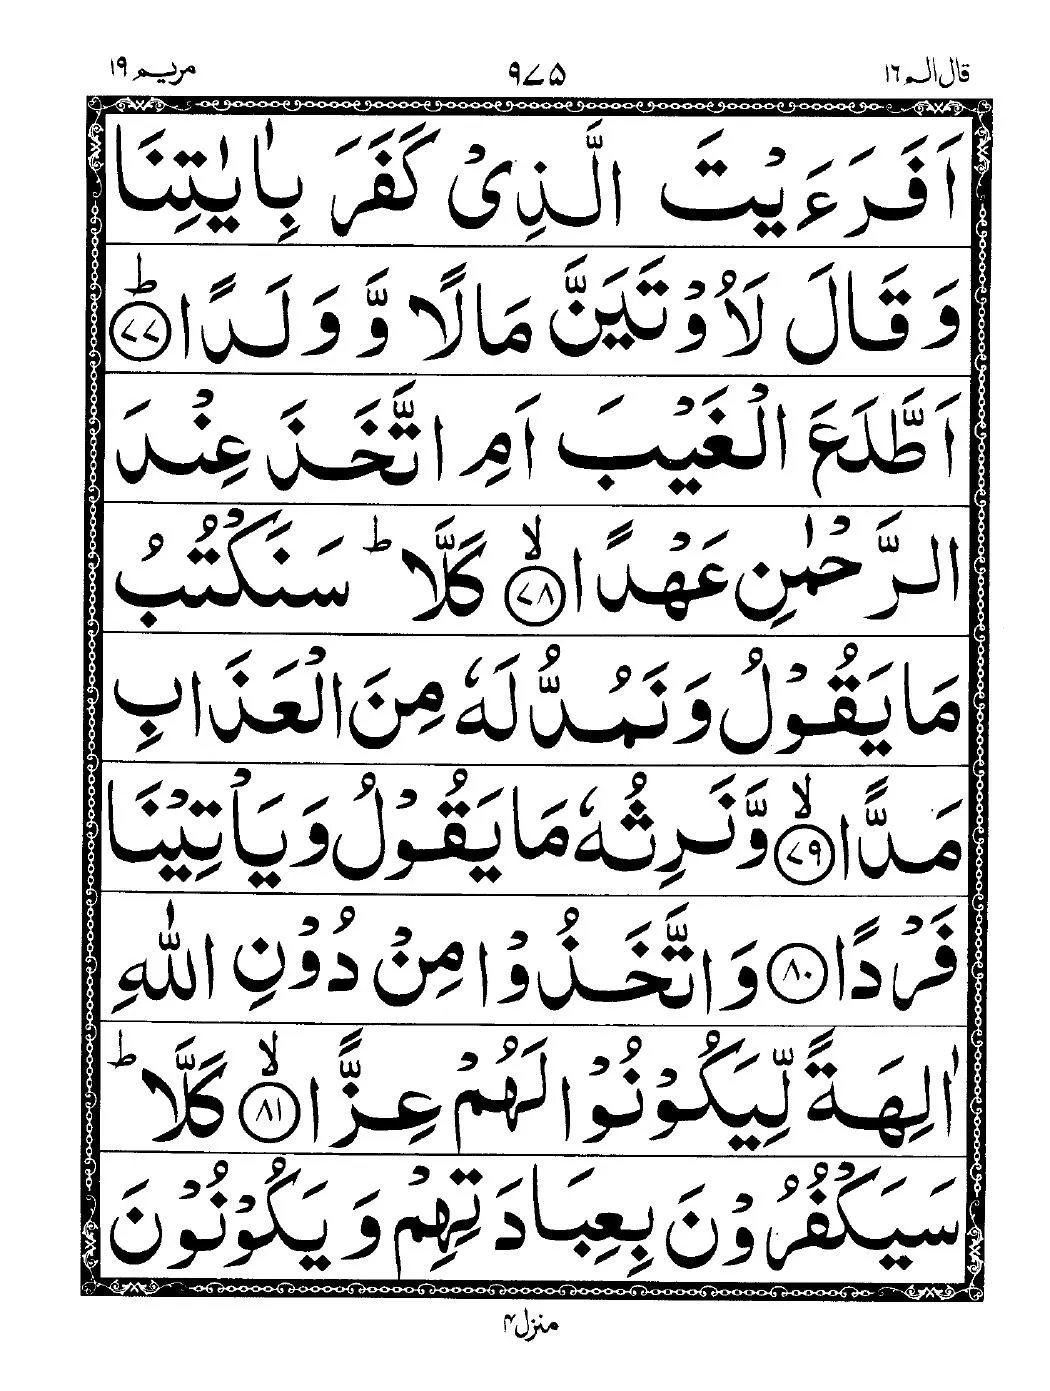 قال الم ١٦
٩٧٥
مريم ١٩
اَفَرَءَيْتَ الَّذِىْ كَفَرَ بِاٰيٰتِنَا
وَقَالَ لَاُوْتَيَنَّ مَالًا وَّوَلَدًا ؕ‏﴿۷۷﴾
اَطَّلَعَ الْغَيْبَ اَمِ اتَّخَذَ عِنْدَ
الرَّحْمٰنِ عَهْدًا ۙ‏﴿۷۸﴾ كَلَّا ؕ سَنَكْتُبُ
مَا يَقُوْلُ وَنَمُدُّ لَهٗ مِنَ الْعَذَابِ
مَدًّا ۙ‏﴿۷۹﴾ وَّنَرِثُهٗ مَا يَقُوْلُ وَيَاْتِيْنَا
فَرْدًا ﴿۸۰﴾ وَاتَّخَذُوْا مِنْ دُوْنِ اللّٰهِ
اٰلِهَةً لِّيَكُوْنُوْا لَهُمْ عِزًّا ۙ‏﴿۸۱﴾ كَلَّا ؕ
سَيَكْفُرُوْنَ بِعِبَادَتِهِمْ وَيَكُوْنُوْنَ
منزل ۴